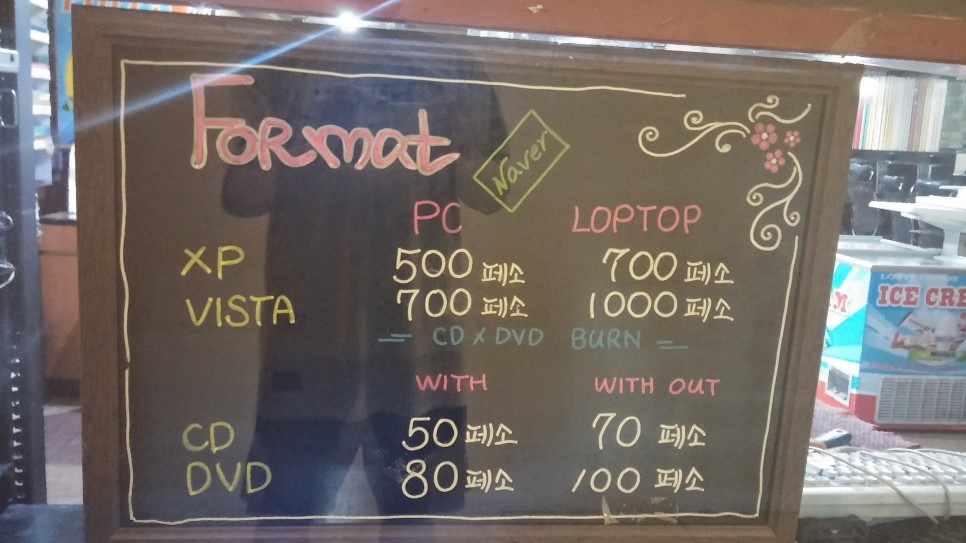 Format
Naver
PC LOPTOP
XP 500 페소 700 페소
VISTA 700 페소 1000 페소
= CD x DVD BURN =
WITH WITH OUT
CD 50 페소 70 페소
DVD 80 페소 100 페소
ICE CRE